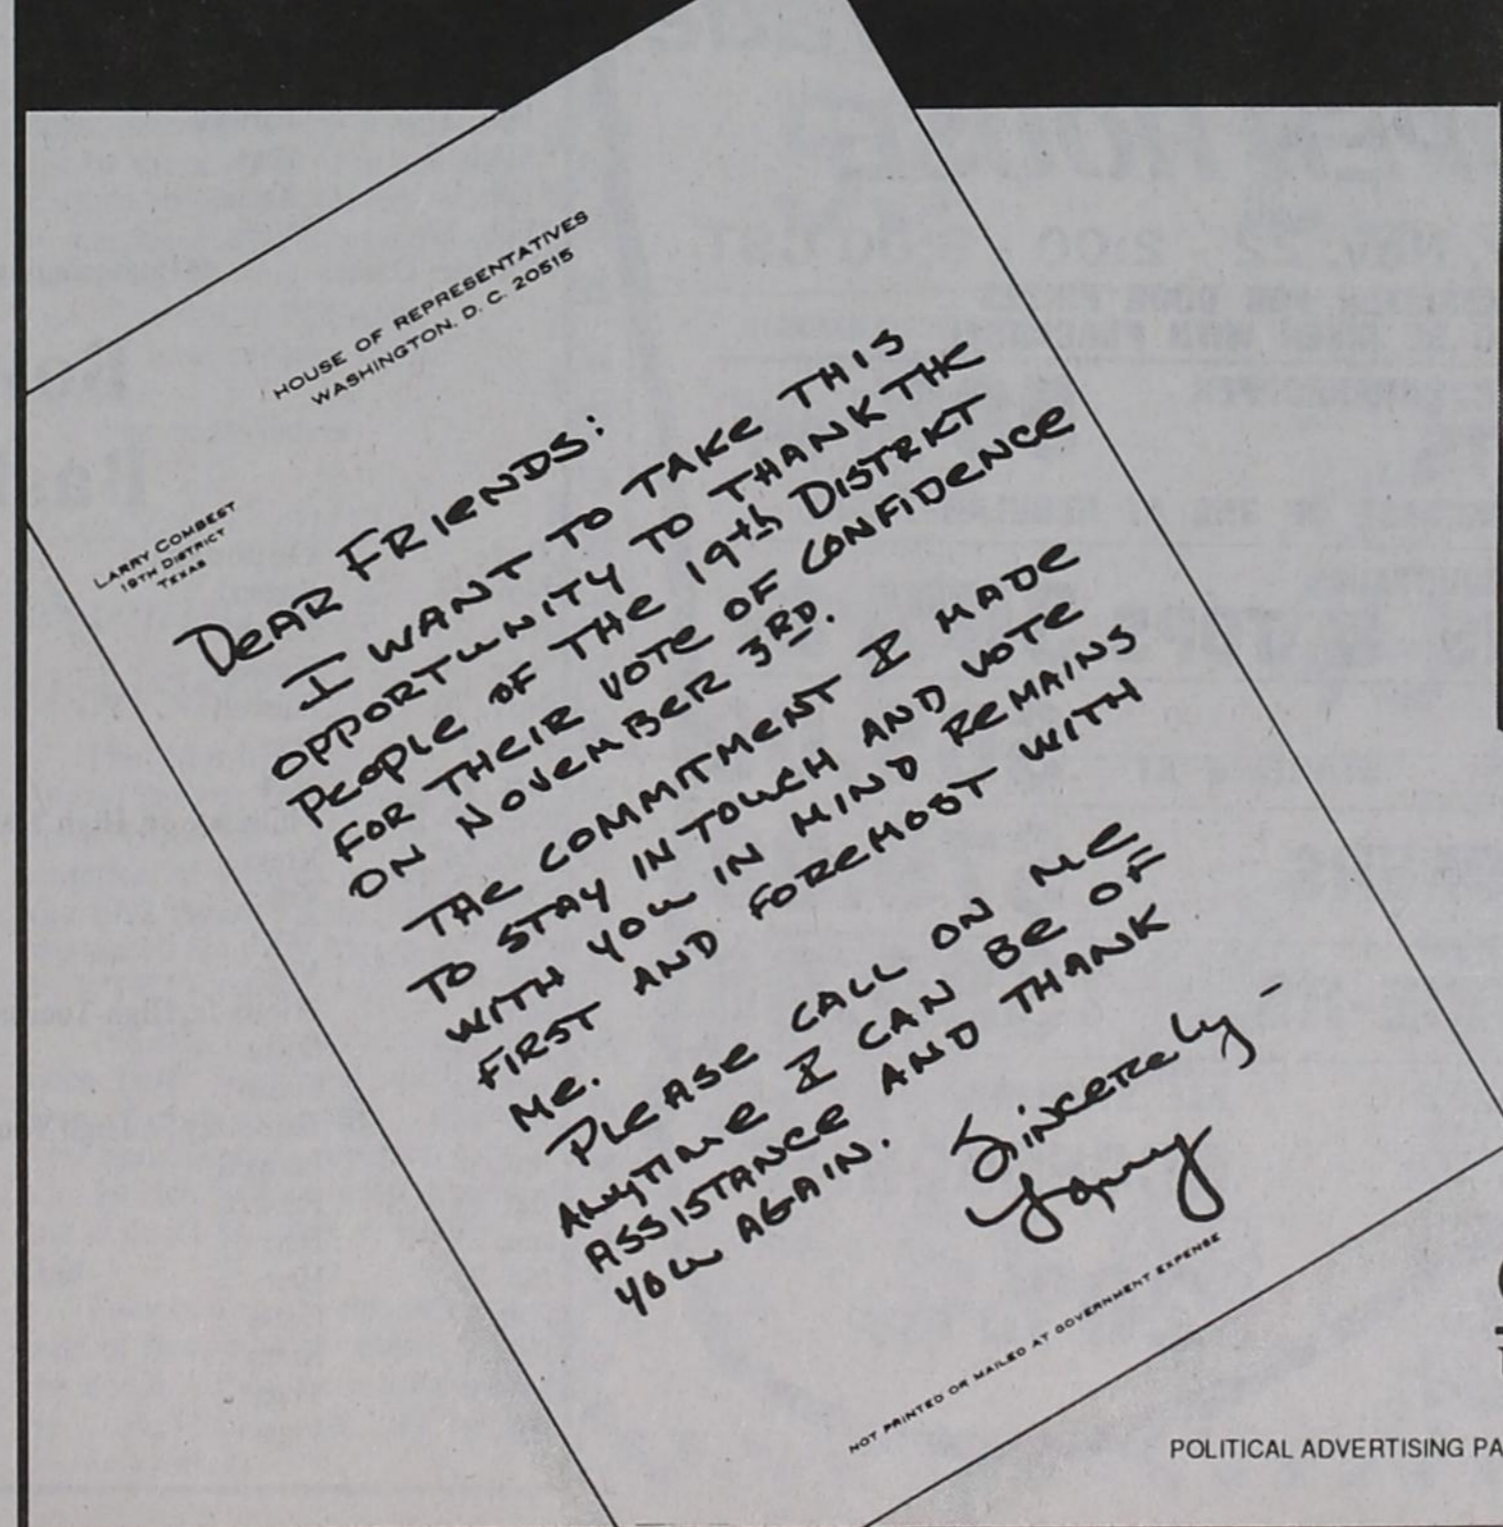 HOUSE OF REPRESENTATIVES
WASHINGTON, D. C. 20515
LARRY COMBEST
19TH DISTRICT
TEXAS
DEAR FRIENDS:
I WANT TO TAKE THIS
OPPORTUNITY TO THANK THE
PEOPLE OF THE 19th DISTRICT
FOR THEIR VOTE OF CONFIDENCE
ON NOVEMBER 3RD.
THE COMMITMENT I MADE
TO STAY IN TOUCH AND VOTE
WITH YOU IN MIND REMAINS
FIRST AND FOREMOST WITH
ME.
PLEASE CALL ON ME
ANYTIME I CAN BE OF
ASSISTANCE AND THANK
YOU AGAIN.
Sincerely -
Larry
NOT PRINTED OR MAILED AT GOVERNMENT EXPENSE
POLITICAL ADVERTISING PA